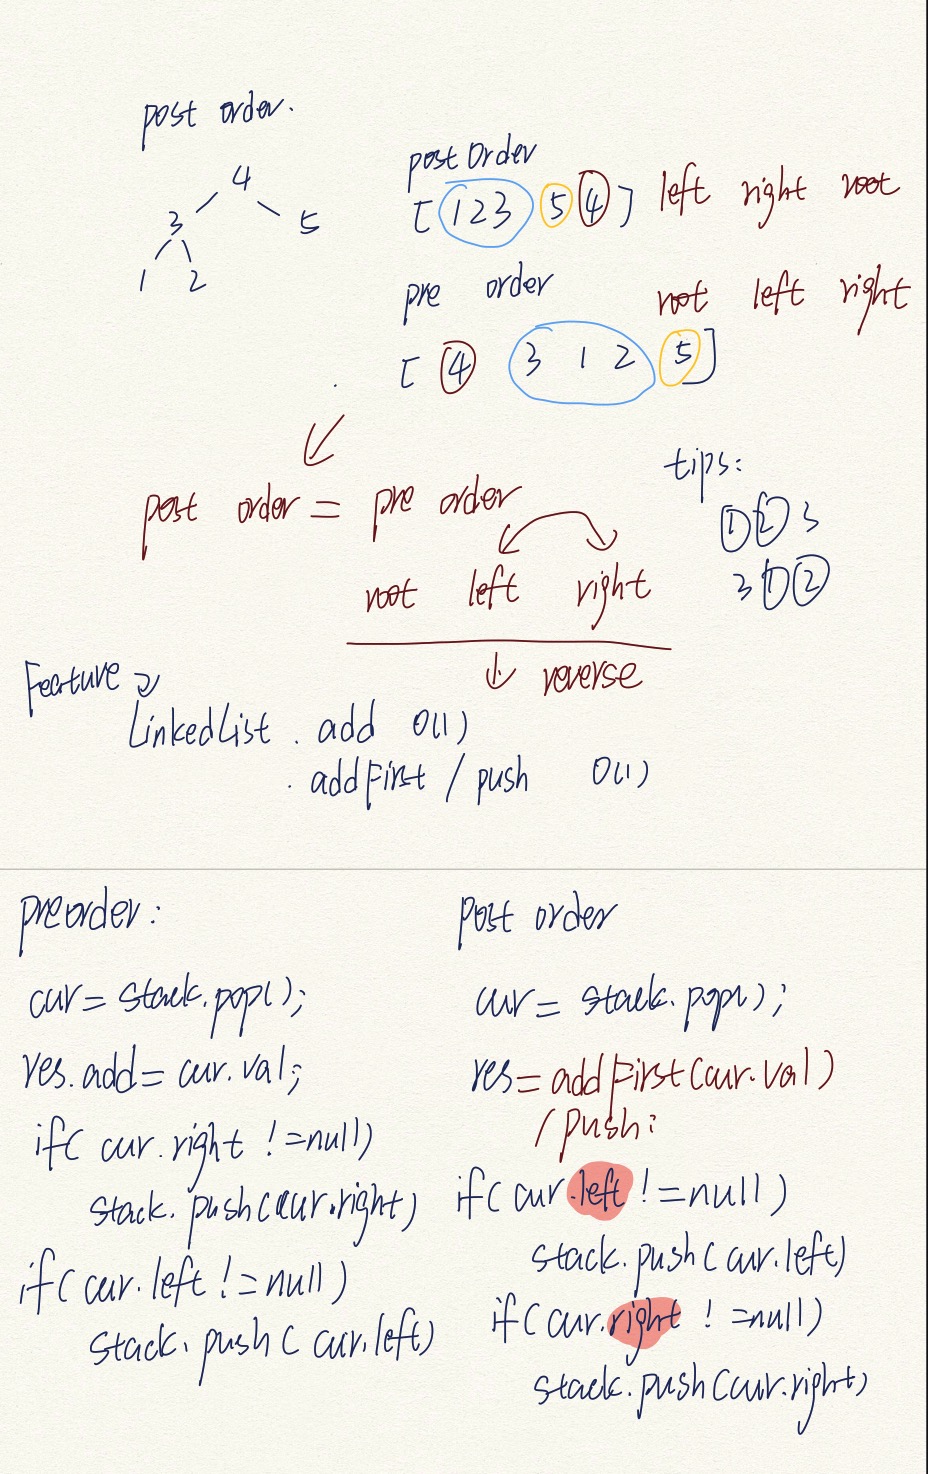 post order.
4
3 5
1 2
postOrder
[ 1 2 3 5 4 ] left right root
pre order root left right
[ 4 3 1 2 5 ]
tips:
1 2 3
3 1 2
post order = pre order
root left right
reverse
Feature
LinkedList . add O(1)
. addFirst / push O(1)
preorder:
cur = stack.pop();
res.add = cur.val;
if( cur.right != null)
stack. push (cur.right)
if( cur.left != null)
stack. push ( cur.left)
post order
cur = stack.pop();
res = addFirst(cur.val)
/ push:
if( cur.left != null)
stack.push( cur.left)
if( cur.right != null)
stack.push(cur.right)